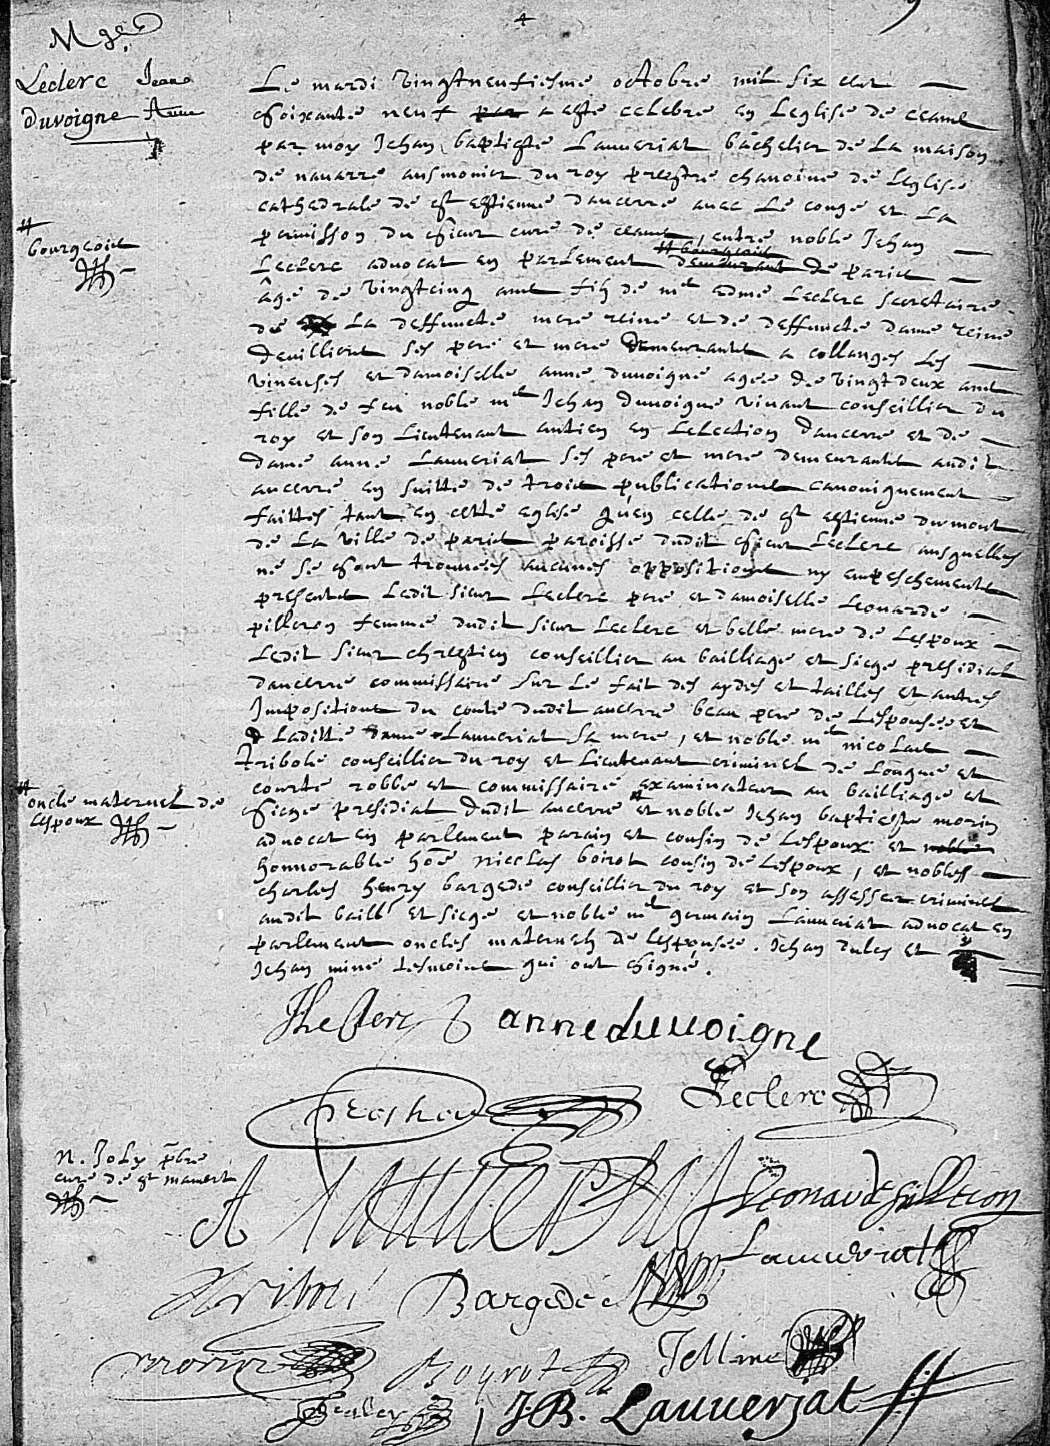 Mge
Leclerc Jean
Duvoigne Anne
Le mardi vingtneufiesme octobre mil six cent
soixante neuf par a este celebre en leglise de ceans
par moy Jehan baptiste Lauueriat bachelier de la maison
de nauarre ausmonier du roy prestre chanoine de leglise
cathedrale de st estienne daucerre auec le conge et la
permission du sieur cure de ceans, entre noble Jehan
bourgeois
Leclerc aduocat en parlement demeurant de paris
âgé de vingtcinq ans fils de me edme Leclerc secretaire
de la deffuncte mere reine et de deffuncte dame reine
deuilliers ses pere et mere demeurants a collanges les
vineuses et damoiselle anne duuoigne agee de vingt deux ans
fille de feu noble me Jehan duuoigne viuant conseillier du
roy et son lieutenant antien en lelection daucerre et de
dame anne Lauueriat ses pere et mere demeurants audit
aucerre en suitte de trois publications canoniquement
faittes tant en cette eglise qu'en celle de st estienne dumont
de la ville de paris paroisse dudit sieur Leclerc ausquelles
ne se sont trouuees aucunes oppositions ny empeschements
presents ledit sieur Leclerc pere et damoiselle Leonarde
pilleron femme dudit sieur Leclerc et belle mere de lespoux
ledit sieur chrestien conseillier au bailliage et siege presidial
daucerre commissaire sur le fait des aydes et tailles et autres
Impositions du conte dudit aucerre beau pere de lespousee et
de laditte dame Lauueriat sa mere, et noble me nicolas
tribole conseillier du roy et lieutenant criminel de longue et
courte robbe et commissaire examinateur au bailliage et
siege presidial dudit aucerre et noble Jehan baptiste morin
aduocat en parlement parain et cousin de lespoux et noble
honnorable hõe nicolas boirot cousin de lespoux, et nobles
charles henry bargedé conseillier du roy et son assesseur criminel
audit baill. et siege et noble me germain Lauueriat aduocat en
parlement oncles maternels de lespousee. Jehan Jules et
Jehan mine tesmoins qui ont signé.
bourgeois
oncle maternel de
lespoux
JLeclerc anne duuoigne
Leclerc
n. Joly pbre
curé de st mamert
A Lauuerjat Leonarde pilleron
Lauueriat
Tribolé Bargedé
morin Boyrot
J.B. Lauuerjat